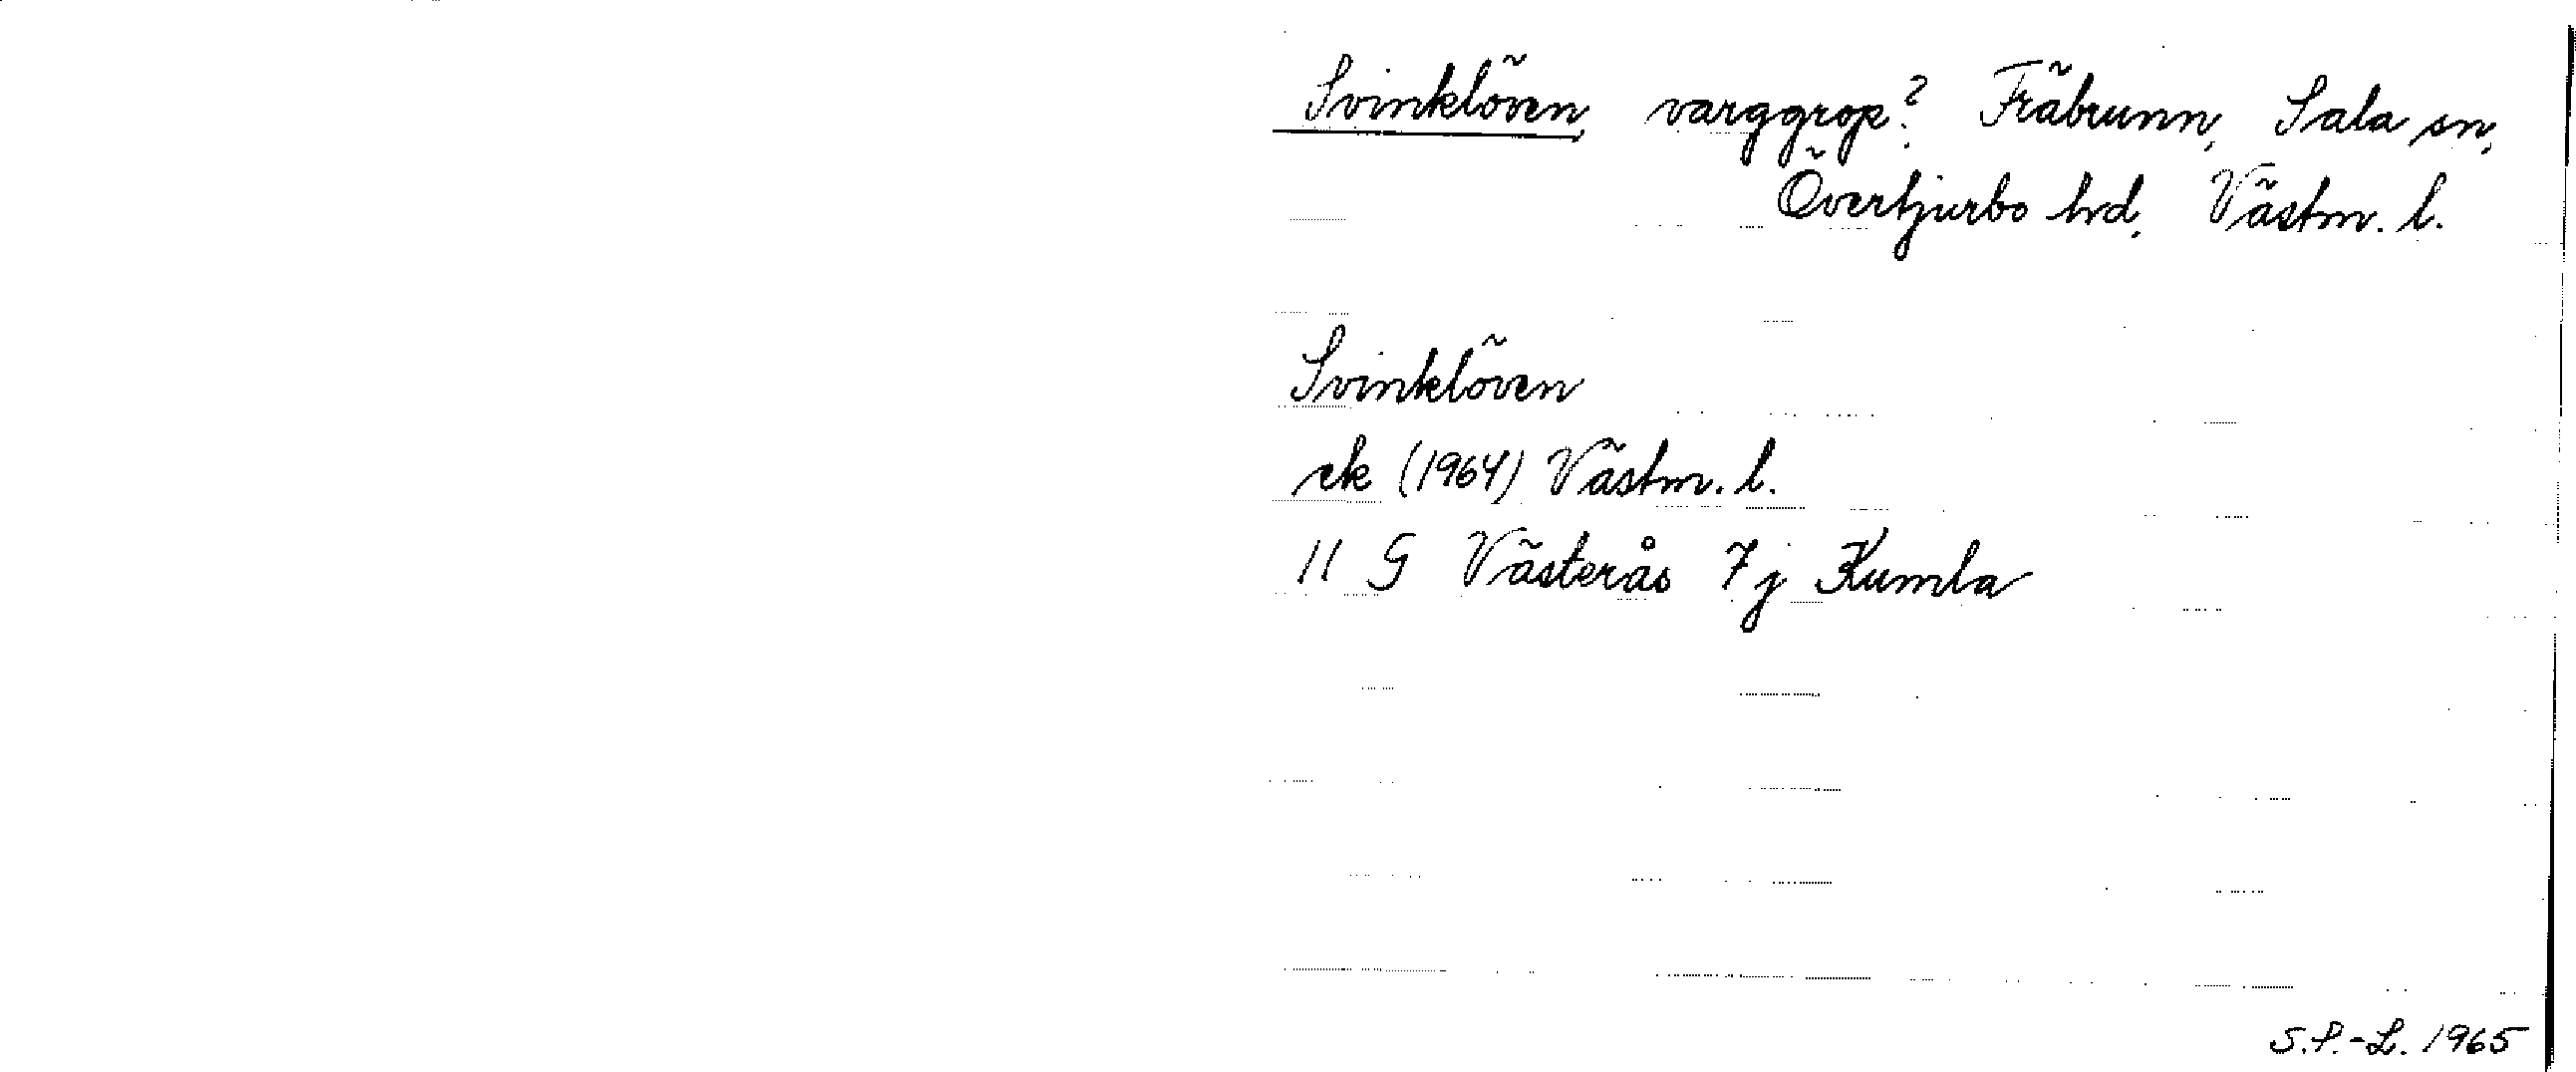 Svinklöven, varggrop? Fräbrunn, Sala sn,
Övertjurbo hrd, Västm. l.
Svinklöven
ek (1964) Västm. l.
11 G Västerås 7 j Kumla
S.P.-L. 1965